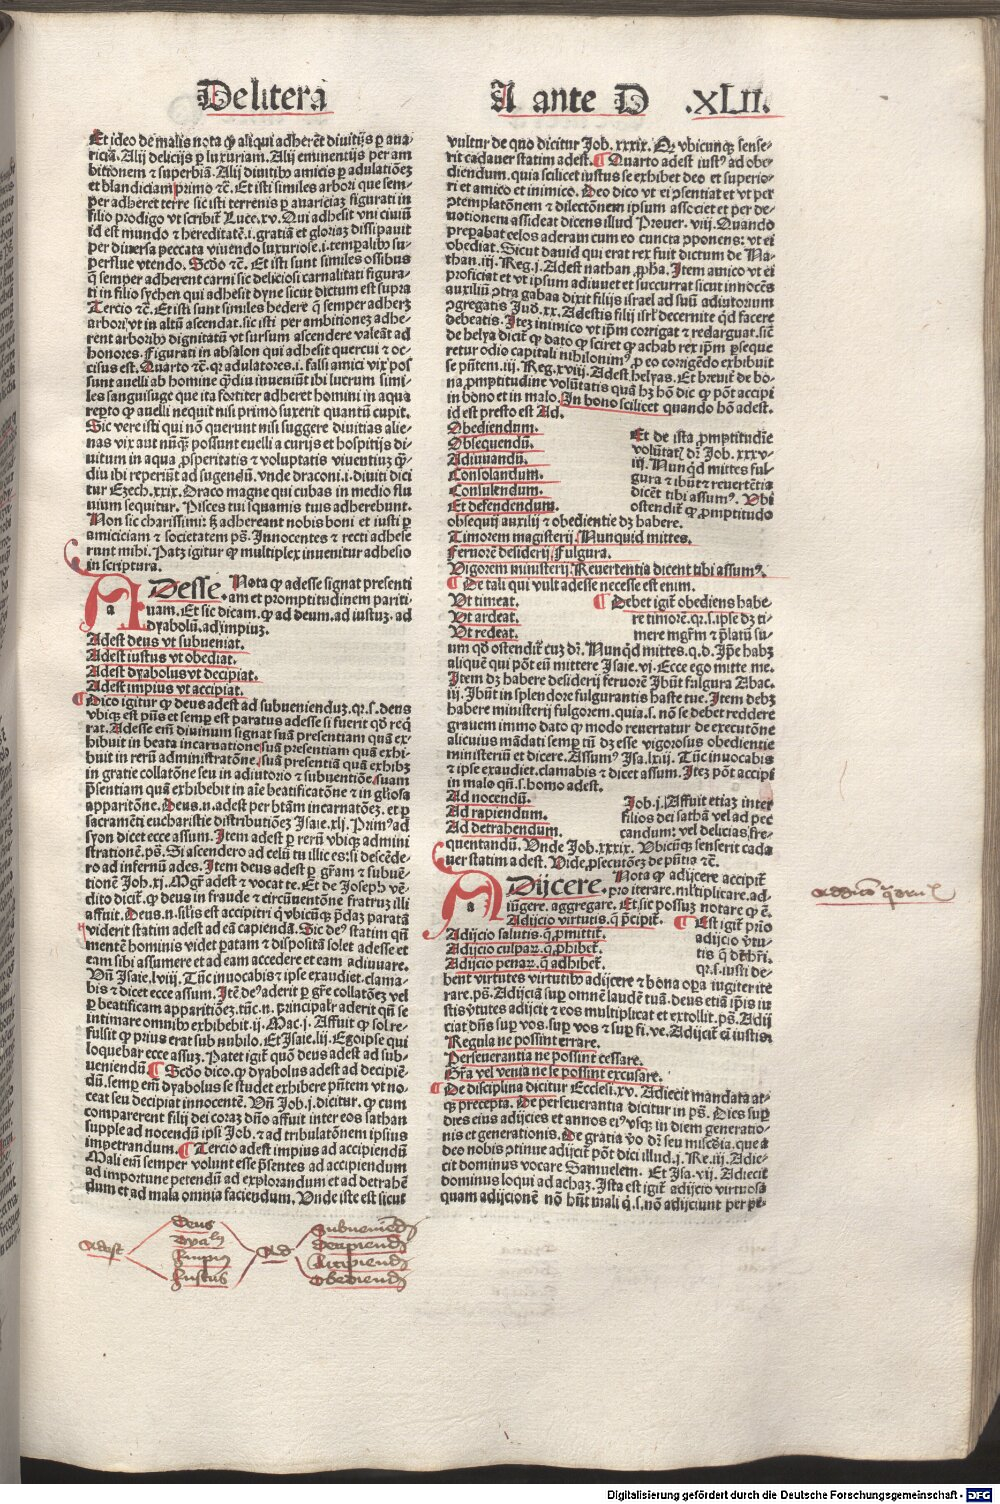 De litera
A ante D .XLII.
Et ideo de malis nota ꝙ aliqui adherẽt diuitijs ꝑ aua
riciã. Alij delicijs ꝑ luxuriam. Alij eminentijs per am
bitionem ⁊ superbiã. Alij diuitibꝰ amicis ꝑ adulatiõeꝫ
et blandiciam primo ⁊c̃. Et isti similes arbori que sem-
per adheret terre sic isti terrenis ꝑ auariciaꝫ figurati in
filio prodigo vt scribit̃ Luce.xv. Qui adhesit vni ciuiũ
id est mundo ⁊ hereditatẽ.i.gratiã et gloriaꝫ dissipauit
per diuersa peccata viuendo luxuriose.i.temꝑalibꝰ su-
perflue vtendo. Scđo ⁊c̃. Et isti sunt similes ossibus
q̃ semper adherent carni sic deliciosi carnalitati figura-
ti in filio sychen qui adhesit dyne sicut dictum est supra
Tercio ⁊c̃. Et isti sunt similes hedere q̃ semper adherꝫ
arbori vt in altũ ascendat. sic isti per ambitioneꝫ adhe-
rent arboribꝰ dignitatũ vt sursum ascendere valeãt ad
honores. figurati in absalon qui adhesit quercui ⁊ oc-
cisus est. Quarto ⁊c̃. qꝛ adulatores.i. falsi amici vix pos
sunt auelli ab homine q̃diu inueniũt ibi lucrum simi-
les sanguisuge que ita fortiter adheret homini in aqua
reꝑto ꝙ auelli nequit nisi primo suxerit quantũ cupit.
Sic vere isti qui nõ querunt nisi suggere diuitias alie-
nas vix aut nũq̃ꝫ possunt euelli a curijs et hospitijs di-
uitum in aqua ꝓsperitatis ⁊ voluptatis viuentiuꝫ q̃-
diu ibi reperiũt̃ ad sugendũ. vnde draconi.i.diuiti dici
tur Ezech.xxix. Draco magne qui cubas in medio flu
uium sequitur. Pisces tui squamis tuis adherebunt.
Non sic charissimi: sꝫ adhereant nobis boni et iusti ꝑ
amiciciam ⁊ societatem pš. Innocentes ⁊ recti adhese
runt mihi. Patꝫ igitur ꝙ multiplex inuenitur adhesio
in scriptura.
ADesse. Nota ꝙ adesse signat presenti
am et promptitudinem pariti
uam. Et sic dicam. ꝙ ad deum. ad iustuꝫ. ad
dyabolũ. ad impiuꝫ.
Adest deus vt subueniat.
Adest iustus vt obediat.
Adest dyabolus vt decipiat.
Adest impius vt accipiat.
¶ Dico igitur ꝙ deus adest ad subuenienduꝫ. qꝛ.s. deus
vbiqꝫ est pñs et semꝑ est paratus adesse si fuerit qđ req̃
rat. Adesse eñi diuinum signat suã presentiam quã ex-
hibuit in beata incarnatione. suã presentiam quã exhi-
buit in rerũ administratõne. suã presentiã quã exhibꝫ
in gratie collatõne seu in adiutorio ⁊ subuentiõe. suam
p̃sentiam quã exhibebit in aĩe beatificatõne ⁊ in gl̃iosa
apparitõne. Deus.n.adest per btãm incarnatõeꝫ. et ꝑ
sacramẽti eucharistie distributiõeꝫ Isaie.xlj. Primꝰ ad
syon dicet ecce assum. Item adest ꝑ rerũ vbiqꝫ admini
strationẽ.pš. Si ascendero ad celũ tu illic es: si descẽde-
ro ad infernũ ades. Item deus adest ꝑ gr̃am ⁊ subuẽ-
tionẽ Joh.xj. Mgr̃ adest ⁊ vocat te. Et de Joseph vẽ-
dito dicit̃. ꝙ deus in fraude ⁊ circũuentõne fratruꝫ illi
affuit. Deus.n.silis est accipitri q̃ vbicũqꝫ p̃daꝫ paratã
viderit statim adest ad eã capiendã. Sic deꝰ statim qñ
mentẽ hominis videt patam ⁊ dispositã solet adesse et
eam sibi assumere et ad eam accedere et eam adiuuare.
Vñ Isaie.lviij. Tũc inuocabis ⁊ ipse exaudiet. clama-
bis ⁊ dicet ecce assum. Itẽ deꝰ aderit ꝑ gl̃e collatõeꝫ vel
ꝑ beatificam apparitiõeꝫ. tũc.n. principalr̃ aderit qñ se
intimare omnibꝰ exhibebit.ij. Mac.j. Affuit ꝙ sol re-
fulsit ꝙ prius erat sub nubilo. Et Isaie.lij. Ego ipse qui
loquebar ecce assuꝫ. Patet igit̃ quõ deus adest ad sub-
ueniendũ ¶ Scđo dico. ꝙ dyabolus adest ad decipiẽ-
dũ. semꝑ em̃ dyabolus se studet exhibere p̃ñtem vt no-
ceat seu decipiat innocentẽ. Vñ Job.j.dicitur. ꝙ cum
comparerent filij dei coraꝫ dño affuit inter eos sathan
supple ad nocendũ ipsi Job. ⁊ ad tribulatõnem ipsius
impetrandum. ¶ Tercio adest impius ad accipiendũ
Mali em̃ semper volunt esse p̃sentes ad accipiendum
ad importune petendũ ad explorandum et ad detrahẽ
dum et ad mala omnia faciendum. Unde iste est sicut
vultur de quo dicitur Job.xxxix. Qꝛ vbicunqꝫ sense-
rit cadauer statim adest. ¶ Quarto adest iustꝰ ad obe-
diendum. quia scilicet iustus se exhibet deo et superio-
ri et amico et inimico. Deo dico vt ei p̃sentiat et vt per
ꝯtemplatõnem ⁊ dilectõnem ipsum associet et per de-
uotionem assideat dicens illud Prouer.viij. Quando
prep̃abat celos aderam cum eo cuncta ꝓponens: vt ei
obediat. Sicut dauid qui erat rex fuit dictum de Na-
than.iij. Reg.j. Adest nathan ꝓph̃a. Item amico vt ei
proficiat et vt ipsum adiuuet et succurrat sicut innocẽs
auxiliũ ꝯtra gabaa dixit filijs israel ad suũ adiutorum
ꝯgregatis Jud̃.xx. Adestis filij isrl̃ decernite qđ facere
debeatis. Iteꝫ inimico vt ip̃m corrigat ⁊ redarguat. sic̃
de helya dicit̃ ꝙ dato ꝙ sciret ꝙ achab rex ip̃m ꝑseque
retur odio capitali nihilonimꝰ ꝓ eo corrigẽdo exhibuit
se p̃ntem.iij. Reg.xviij. Adest helyas. Et breuit̃ de bo-
na ꝓmptitudine volũtatis quã hꝫ hõ dic̃ ꝙ põt accipi
in bono et in malo. In bono scilicet quando hõ adest.
id est presto est Ad.
Obediendum.
Obsequendũ.
Adiuuandũ.
Consolandum.
Consulendum.
Et defendendum.
Et de ista ꝓmptitudĩe
volũtatꝭ dr̃. Job.xxxv-
iij. Nunqđ mittes ful-
gura ⁊ ibũt ⁊ reuertẽtia
dicẽt tibi assumꝰ. Vbi
ostendit̃ ꝙ ꝓmptitudo
obsequij auxilij ⁊ obedientie dꝫ habere.
Timorem magisterij. Nunquid mittes.
Feruorẽ desiderij. Fulgura.
Vigorem ministerij. Reuertentia dicent tibi assumꝰ.
¶ De tali qui vult adesse necesse est enim.
Vt timeat.
Vt ardeat.
Vt redeat.
¶ Debet igit̃ obediens habe-
re timorẽ. qꝛ.s.ipse dꝫ ti-
mere mgr̃m ⁊ p̃latũ su-
um qđ ostendit̃ cuꝫ dr̃. Nunqđ mittes. q.d. Ip̃e habꝫ
aliquẽ qui põt eũ mittere Isaie.vj. Ecce ego mitte me.
Item dꝫ habere desiderij feruorẽ Ibũt fulgura Abac.
iij. Ibũt in splendore fulgurantis haste tue. Item debꝫ
habere ministerij fulgorem. quia.s. nõ se debet reddere
grauem immo dato ꝙ modo reuertatur de executõne
alicuius mãdati semꝑ tñ dꝫ esse vigorosus obedientie
ministeriũ et dicere. Assumꝰ Isa.lxiij. Tũc inuocabis
⁊ ipse exaudiet. clamabis ⁊ dicet assum. Iteꝫ põt accipi
in malo qñ.s.homo adest.
Ad nocendũ.
Ad rapiendum.
Ad detrahendum.
Job.j. Affuit etiaꝫ inter
filios dei sathã vel ad pec
candum: vel delicias fre-
quentandũ. Vnde Job.xxxix. Vbicũqꝫ senserit cada
uer statim adest. Vide.ꝑsecutõeꝫ de pñtia ⁊c̃.
ADijcere. Nota ꝙ adijcere accipit̃
pro iterare. multiplicare. ad-
iũgere. aggregare. Et sic possuꝫ notare ꝙ ẽ.
Adijcio virtutis. q̃ p̃cipit̃.
Adijcio salutis. q̃ ꝓmittit̃.
Adijcio culpaꝝ. q̃ ꝓhibet̃.
Adijcio penaꝝ. q̃ adhibet̃.
¶ Est igit̃ prio
adijcio vtu-
tis q̃ dr̃ hr̃i.
qꝛ.s. iusti de-
bent virtutes virtutibꝰ adijcere ⁊ bona oꝑa iugiter ite
rare.pš. Adijciã suꝑ omnẽ laudẽ tuã. deus etiã ip̃is iu
stis ṽtutes adijcit ⁊ eos multiplicat et extollit.pš. Adij
ciat dñs suꝑ vos. suꝑ vos ⁊ suꝑ fi.ve. Adijcit̃ eĩ iustis
Regula ne possint errare.
Perseuerantia ne possint cessare.
Gr̃a vel venia ne se possint excusare.
¶ De disciplina dicitur Eccl̃i.xv. Adiecit mandata at-
qꝫ precepta. De perseuerantia dicitur in pš. Dies suꝑ
dies eius adijcies et annos eiꝰ vsqꝫ in diem generatio-
nis et generationis. De gratia ṽo dr̃ seu misc̃dia. que a
deo nobis ꝯtinue adijcit̃ põt dici illud.j. Re.iij. Adie-
cit dominus vocare Samuelem. Et Isa.vij. Adiecit
dominus loqui ad achaꝫ. Ista est igit̃ adijcio virtuosa
quam adijcionẽ nõ hñt mali q̃.s. nõ adijciunt per ꝑe-
Adest
Deus
Dyalꝰ
Impiꝰ
Iustus
Ad
Subueniẽdũ
Decipiendũ
Accipiendũ
Obediendũ
Digitalisierung gefördert durch die Deutsche Forschungsgemeinschaft - DFG